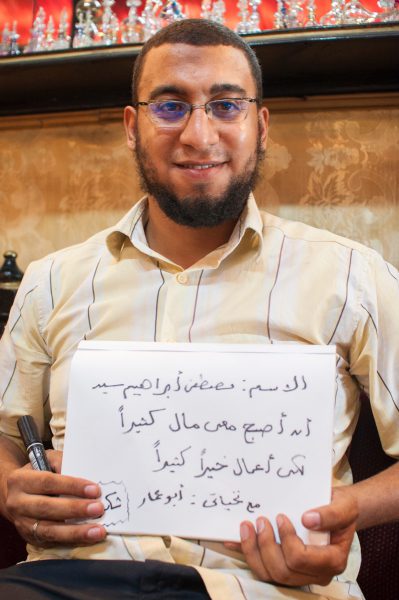 الاسم : مصطفى إبراهيم سيد
أن أصبح معى مال كثيراً
لكى أعمال خيراً كثيراً
مع تحياتى : أبو عمار
شكراً